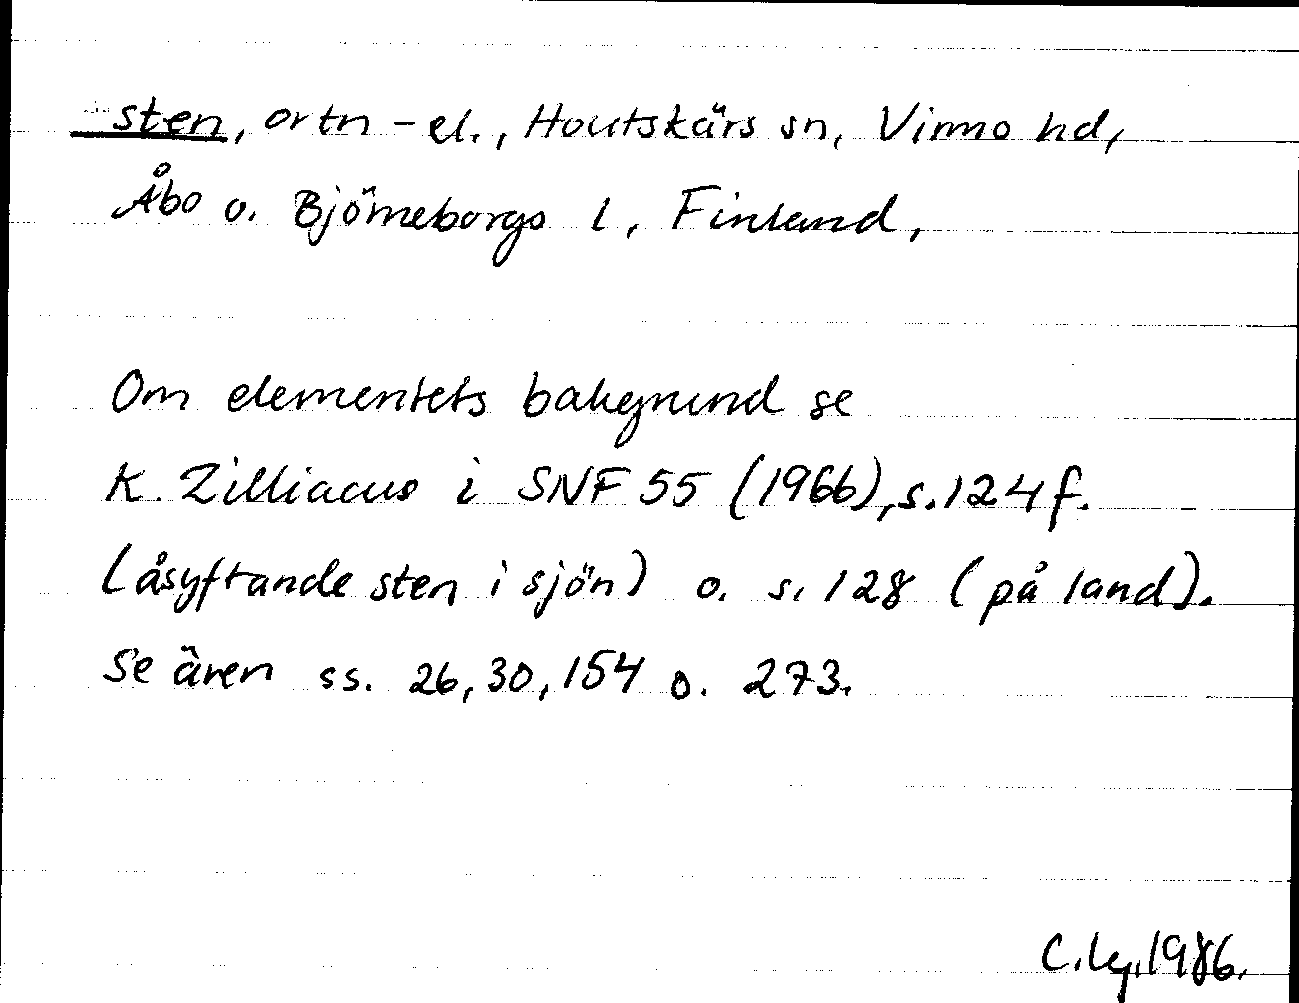 sten, ortn-el., Houtskärs sn, Virmo hd,
Åbo o. Björneborgs l, Finland,
Om elementets bakgrund se
K. Zilliacus i SNF 55 (1966), s. 124 f.
(åsyftande sten i sjön) o. s. 128 (på land).
Se även ss. 26, 30, 154 o. 273.
1986.